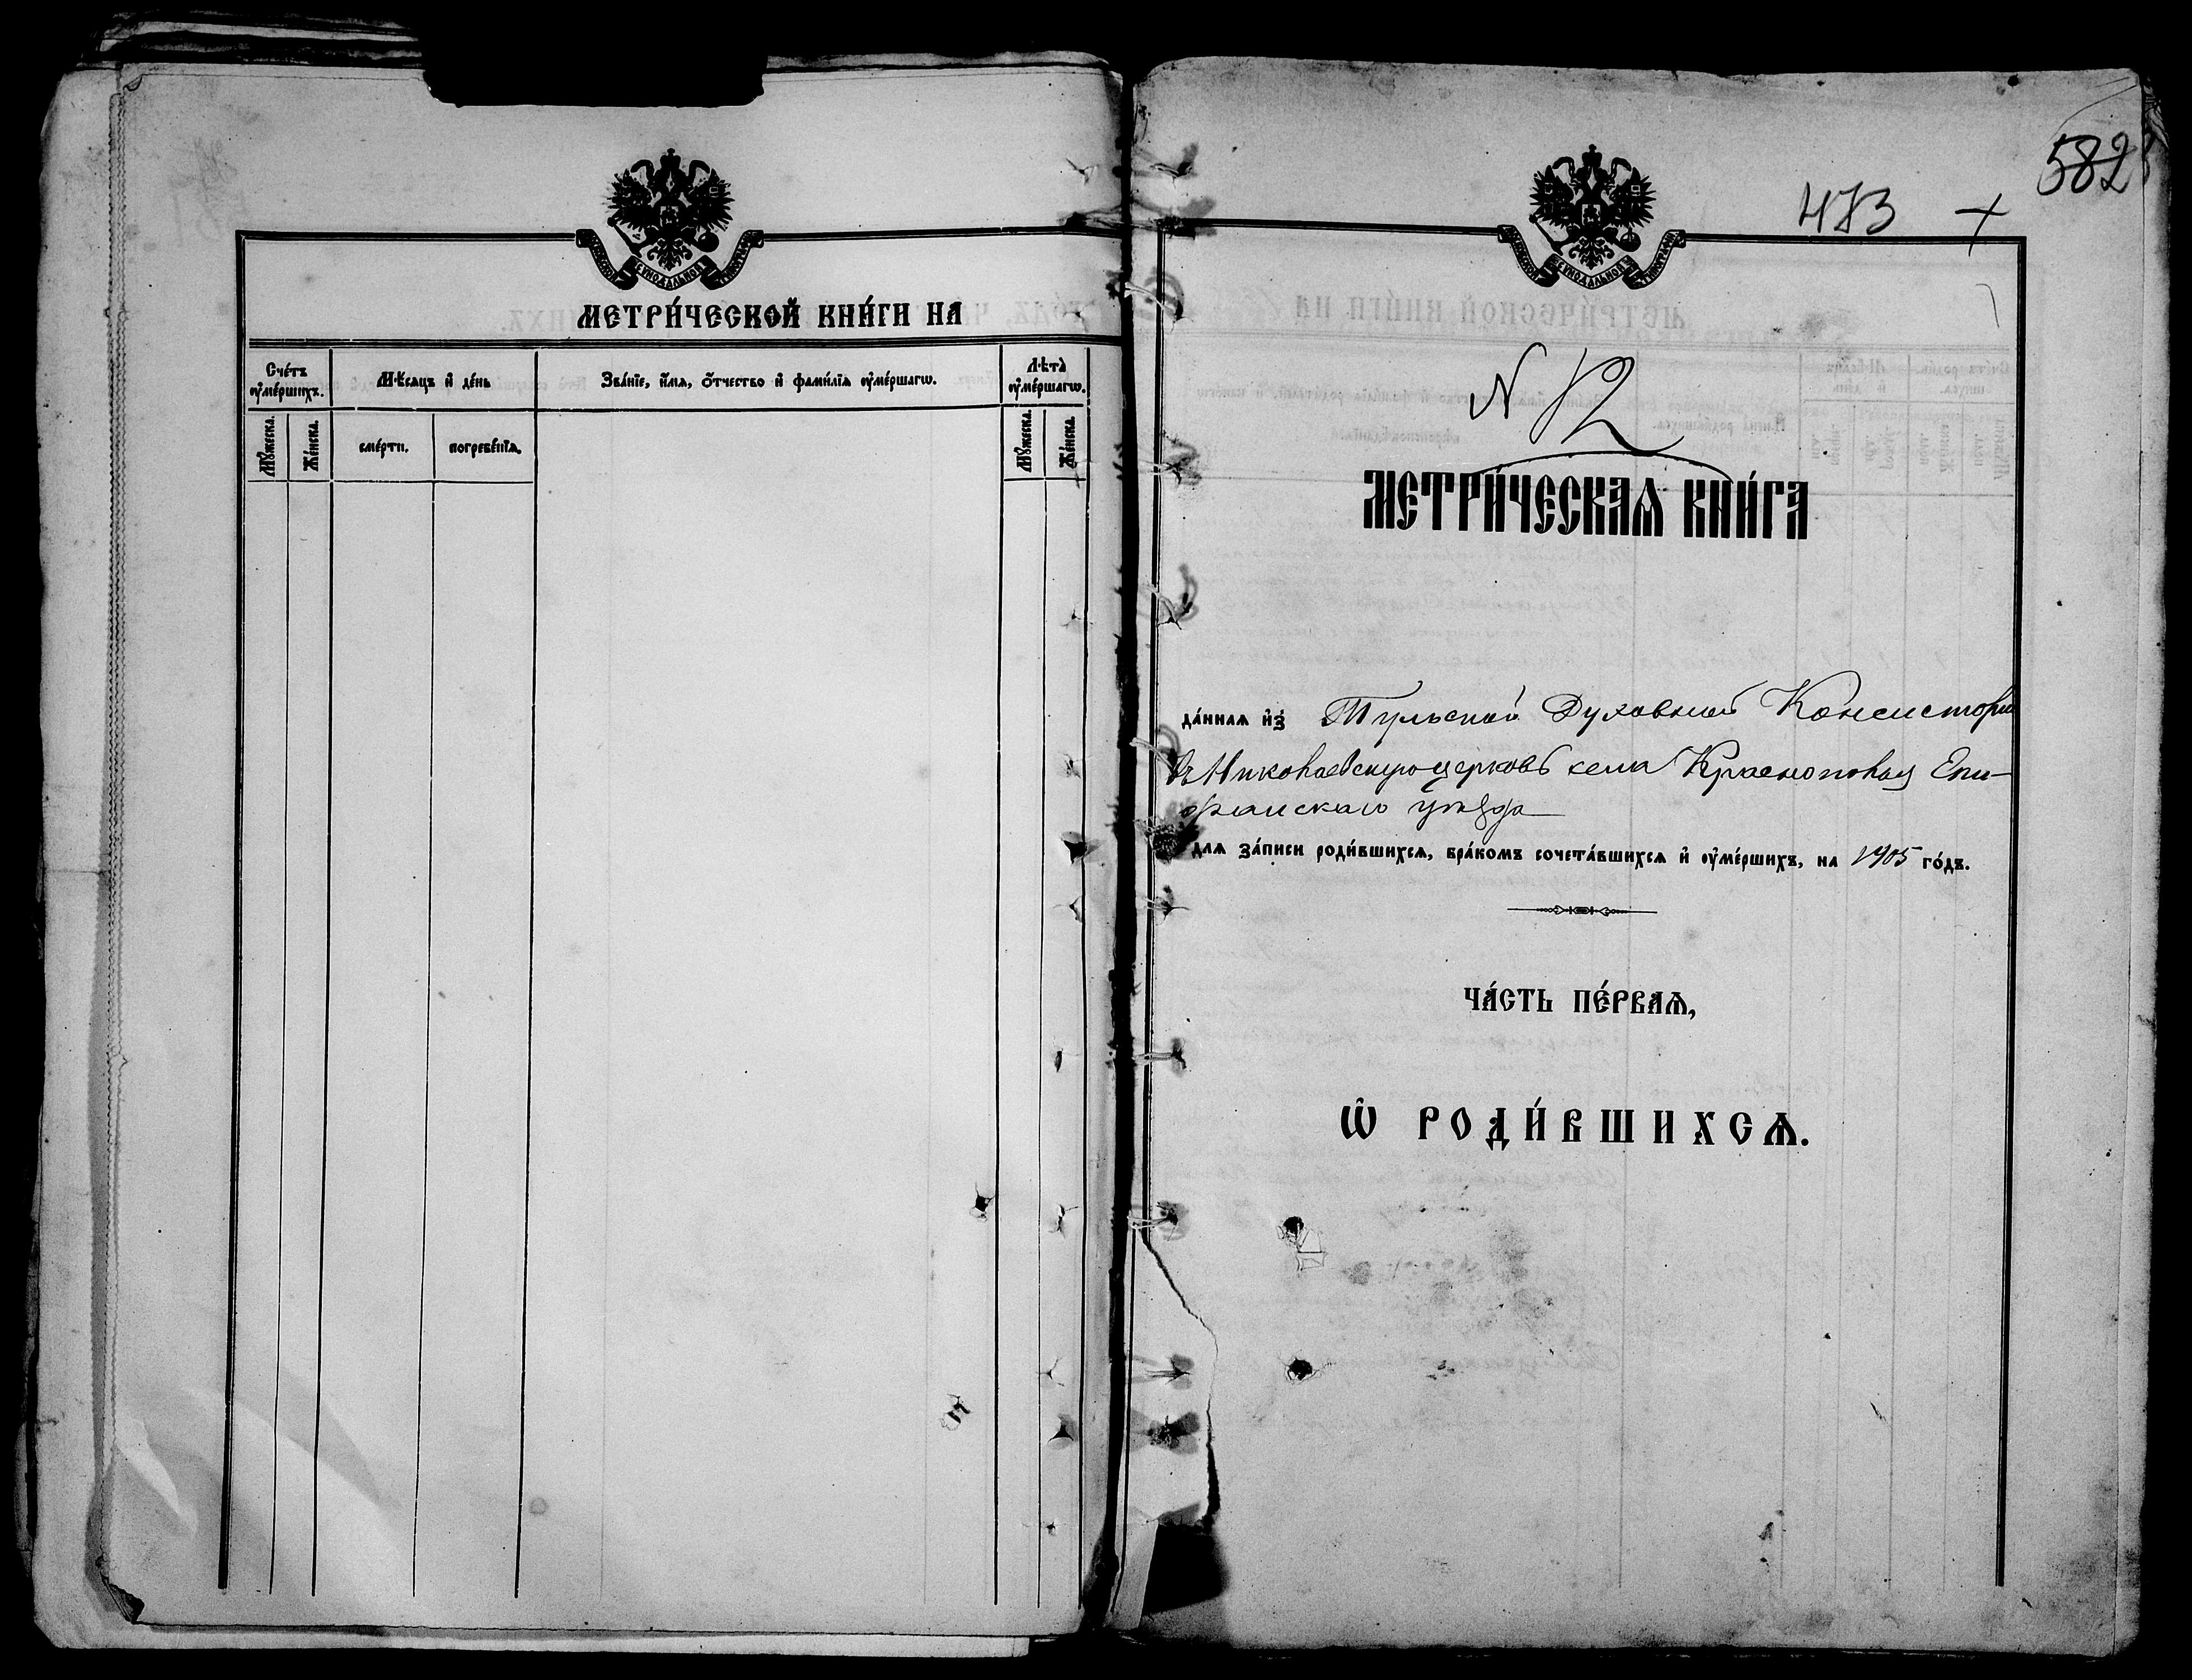 МЕТРИ́ЧЕСКОЙ КНИ́ГИ НА
Сче́тъ оу҆ме́ршихъ.
Мѣ́сяцъ и҆ де́нь
Зва́нїе, и҆́мя, ѻ҆́тчество и҆ фами́лїя оу҆ме́ршагѡ.
Лѣ́та оу҆ме́ршагѡ.
Му́жеска.
Же́нска.
сме́рти.
погребе́нїя.
Му́жеска.
Же́нска.
582
473 +
СѴНОДАЛЬНОЙ
N 12
МЕТРИ́ЧЕСКАЯ КНИ́ГА
да́нная и҆з̾ Тульской Духовной Консисторіи
въ Николаевскую церковь села Краснополья Епи-
фанскаго уѣзда
для за́писи роди́вшихся, бра́комъ сочета́вшихся и҆ оу҆ме́ршихъ, на 1905 го́дъ.
ЧА́СТЬ ПЕ́РВАЯ,
Ѽ РОДИ́ВШИХСЯ.